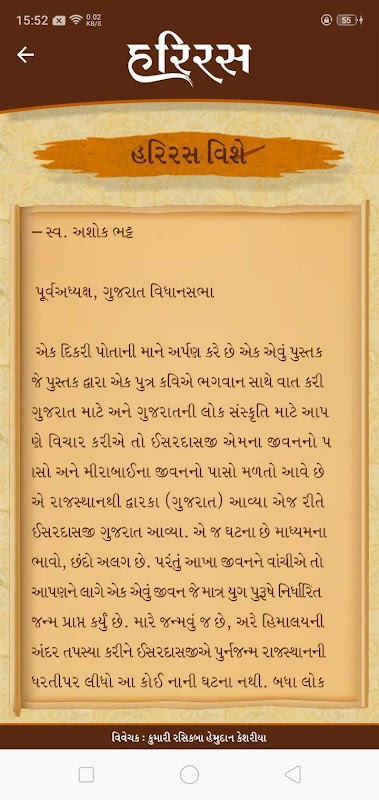 15:52 0.02 KB/S 55
હરિરસ
હરિરસ વિશે
– સ્વ. અશોક ભટ્ટ
પૂર્વઅધ્યક્ષ, ગુજરાત વિધાનસભા
એક દિકરી પોતાની માને અર્પણ કરે છે એક એવું પુસ્તક
જે પુસ્તક દ્વારા એક પુત્ર કવિએ ભગવાન સાથે વાત કરી
ગુજરાત માટે અને ગુજરાતની લોક સંસ્કૃતિ માટે આપ
ણે વિચાર કરીએ તો ઈસરદાસજી એમના જીવનનો પ
ાસો અને મીરાબાઈના જીવનનો પાસો મળતો આવે છે
એ રાજસ્થાનથી દ્વારકા (ગુજરાત) આવ્યા એજ રીતે
ઈસરદાસજી ગુજરાત આવ્યા. એ જ ઘટના છે માધ્યમના
ભાવો, છંદો અલગ છે. પરંતું આખા જીવનને વાંચીએ તો
આપણને લાગે એક એવું જીવન જે માત્ર યુગ પુરૂષે નિર્ધારિત
જન્મ પ્રાપ્ત કર્યું છે. મારે જન્મવું જ છે, અરે હિમાલયની
અંદર તપસ્યા કરીને ઈસરદાસજીએ પુર્નજન્મ રાજસ્થાનની
ધરતીપર લીધો આ કોઈ નાની ઘટના નથી. બધા લોક
વિવેચક : કુમારી રસિકબા હેમુદાન કેશરીયા